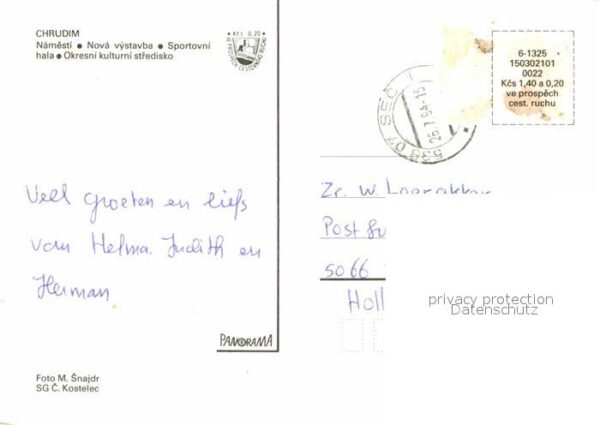 CHRUDIM
Náměstí ● Nová výstavba ● Sportovní
hala ● Okresní kulturní středisko
Kčs 0,20
VE PROSPĚCH CESTOVNÍHO RUCHU
6-1325
150302101
0022
Kčs 1,40 a 0,20
ve prospěch
cest. ruchu
538 07 SEČ
26.7.94-15
Veel groeten en liefs
van Helma. Judith en
Herman
Zr. W
Post
5066
Holl
privacy protection
Datenschutz
PANORAMA
Foto M. Šnajdr
SG Č. Kostelec